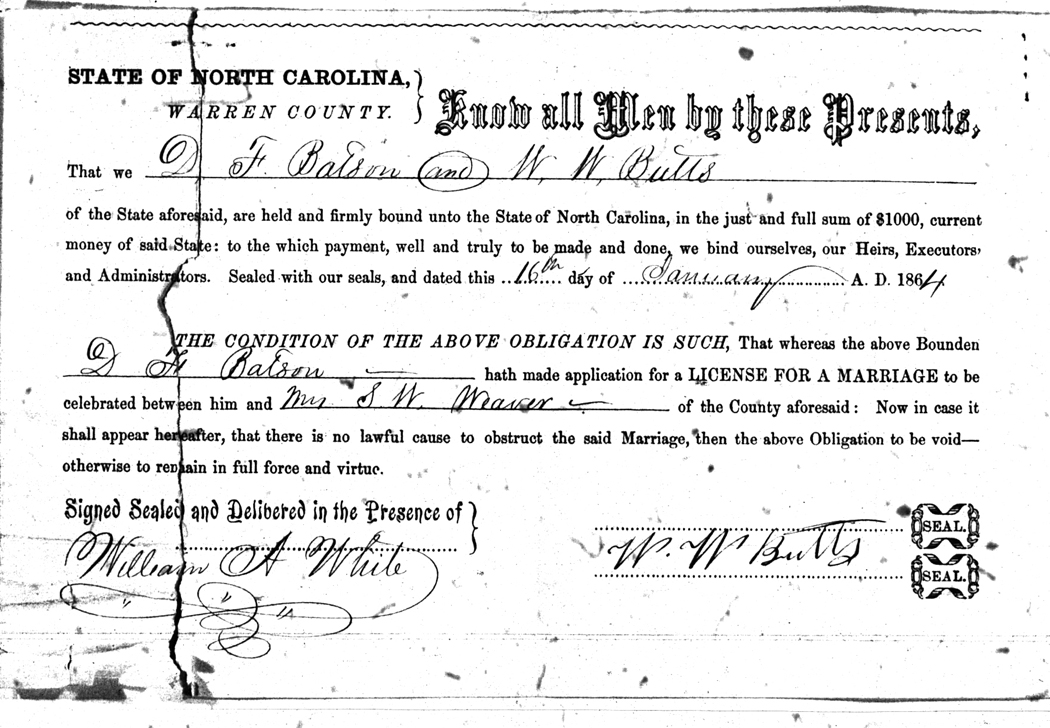 STATE OF NORTH CAROLINA, }
WARREN COUNTY.
Know all Men by these Presents,
That we D F. Batson and W. W. Butts
of the State aforesaid, are held and firmly bound unto the State of North Carolina, in the just and full sum of $1000, current
money of said State: to the which payment, well and truly to be made and done, we bind ourselves, our Heirs, Executors,
and Administrators. Sealed with our seals, and dated this 16th day of January A. D. 1864
THE CONDITION OF THE ABOVE OBLIGATION IS SUCH, That whereas the above Bounden
D F Batson hath made application for a LICENSE FOR A MARRIAGE to be
celebrated between him and Mrs S W. Weaver of the County aforesaid: Now in case it
shall appear hereafter, that there is no lawful cause to obstruct the said Marriage, then the above Obligation to be void—
otherwise to remain in full force and virtue.
Signed Sealed and Delivered in the Presence of }
William A White
SEAL.
W. W Butts
SEAL.